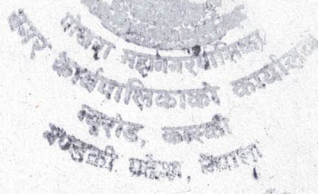 पोखरा महानगरपालिका
नगर कार्यपालिकाको कार्यालय
न्यूरोड, कास्की
गण्डकी प्रदेश, नेपाल